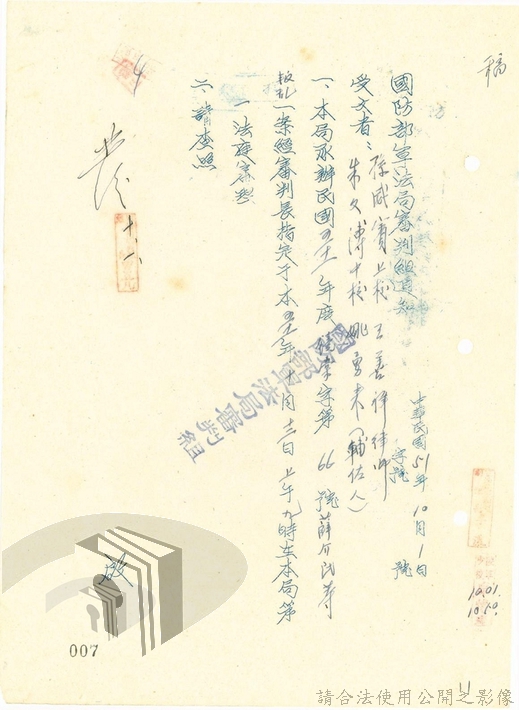 稿
國防部軍法局審判組通知
中華民國51年10月1日
字號 號
受文者：
上校 王善祥律師
朱文溥中校 姚勇來(輔佐人)
一、本局承辦民國五十一年度
字第 66 號薛介民等
叛亂一案經審判長指定于本五十一年十月三日上午九時在本局第
一法庭審判
二、請查照
國防部軍法局審判組
發
十、一
4
敬
10.01.
10.50.
007
11
請合法使用公開之影像